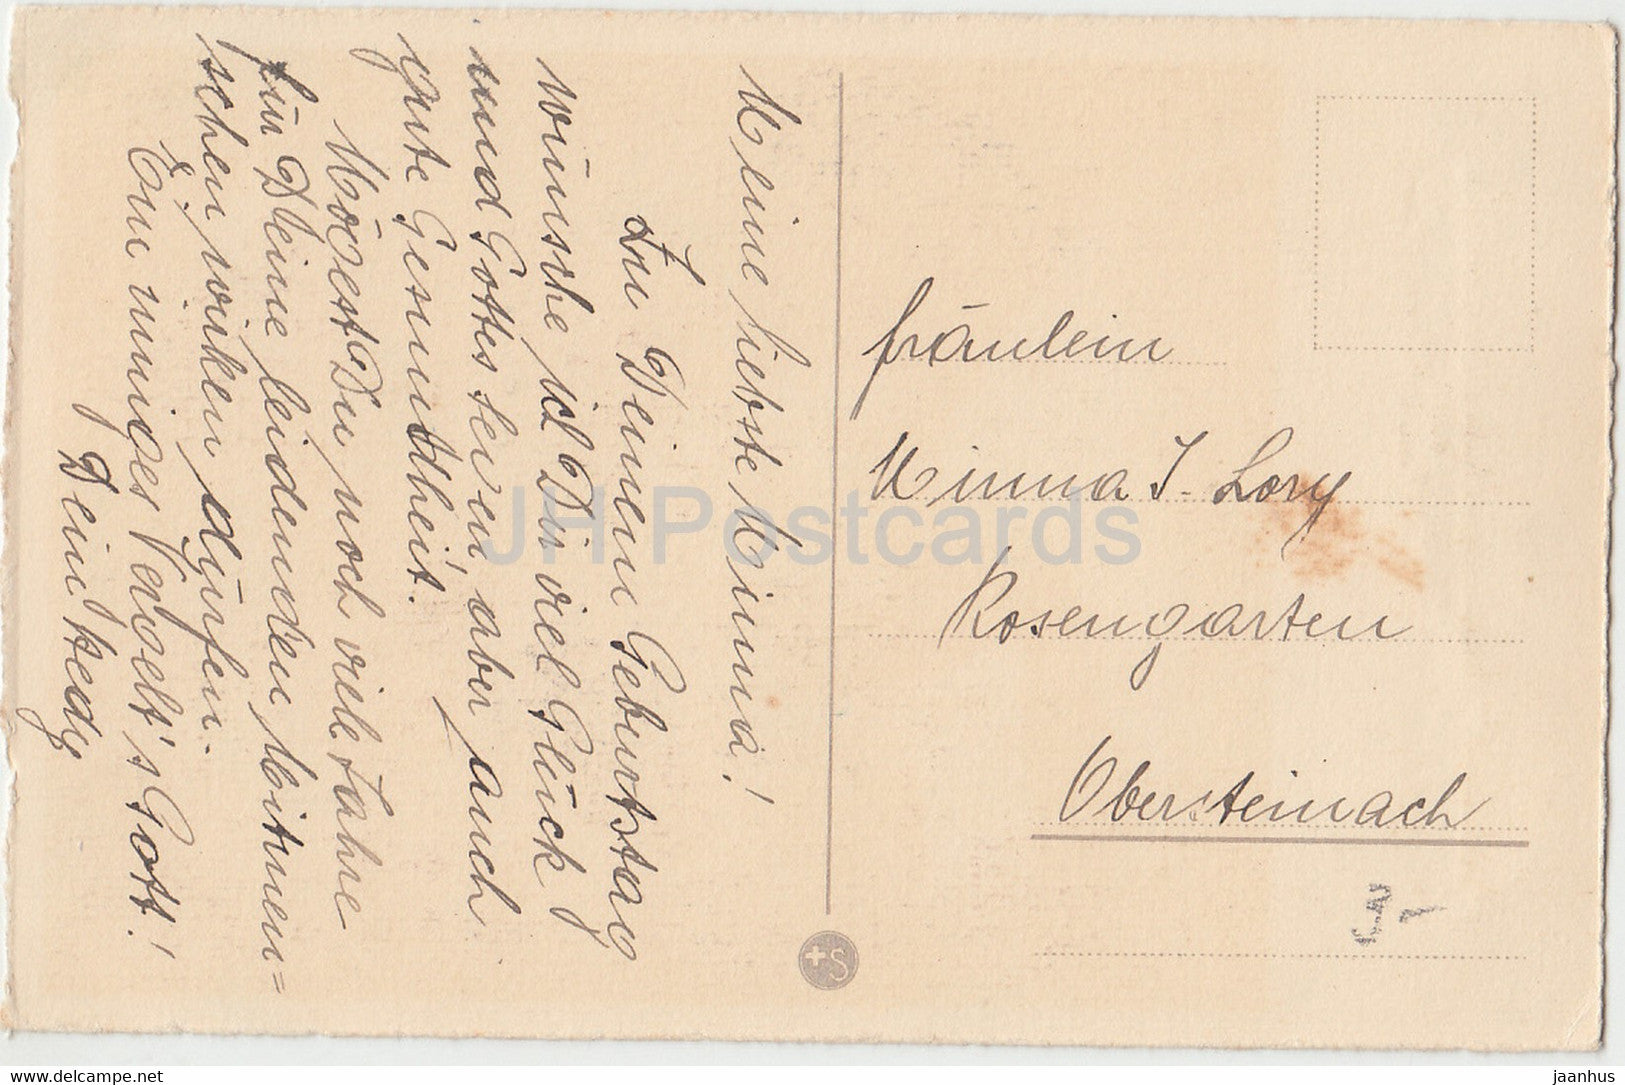 Meine liebste Minna!
Zu Deinem Geburtstag
wünsche ich Dir viel Glück
und Gottes Segen, aber auch
gute Gesundheit.
Mögest Du noch viele Jahre
für Deine leidenden Mitmen=
schen wirken dürfen.
Ein inniges Vergelt's Gott!
Dein Hedy
Fräulein
Minna J. Lory
Rosengarten
Obersteinach
+S
JH Postcards
https://www.hippostcard.com
jaanhus